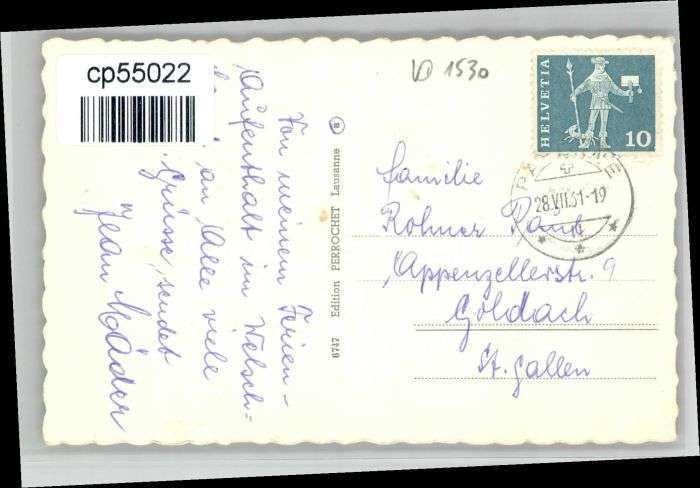 cp55022
VD 1530
HELVETIA
10
28.VII.61-19
Von meinem Ferien-
Aufenthalt im Welsch-
an Alle viele
Grüsse, sendet
Jean Mäder
6747 Edition PERROCHET Lausanne
Familie
Rohner Paul
Appenzellerstr. 9
Goldach
St. Gallen